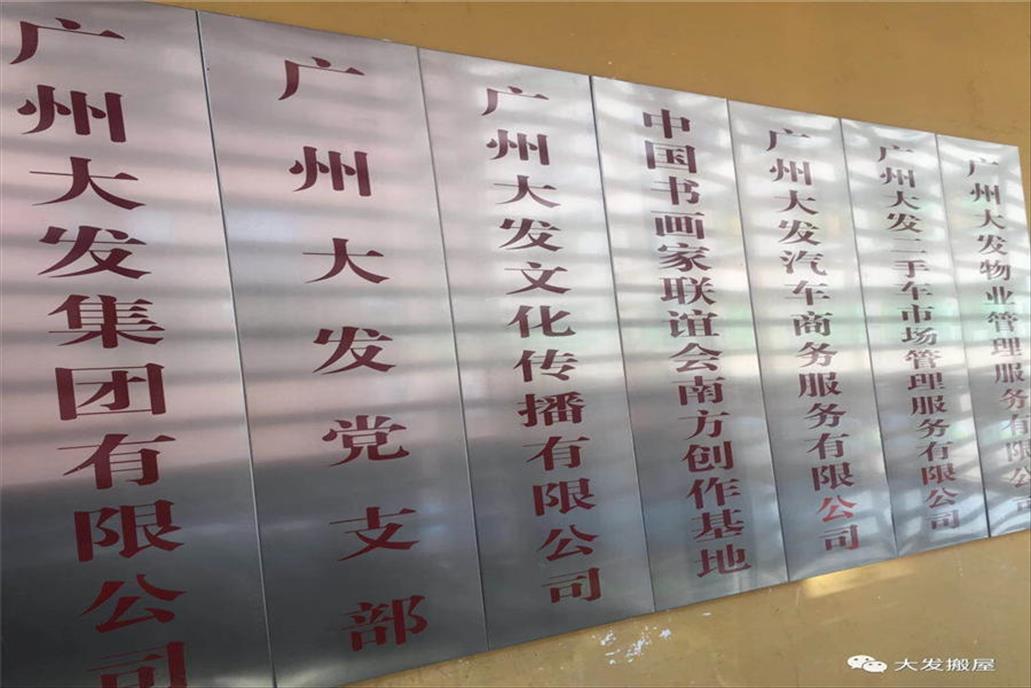 广州大发集团有限公司
广州大发党支部
广州大发文化传播有限公司
中国书画家联谊会南方创作基地
广州大发汽车商务服务有限公司
广州大发二手车市场管理服务有限公司
广州大发物业管理服务有限公司
大发搬屋